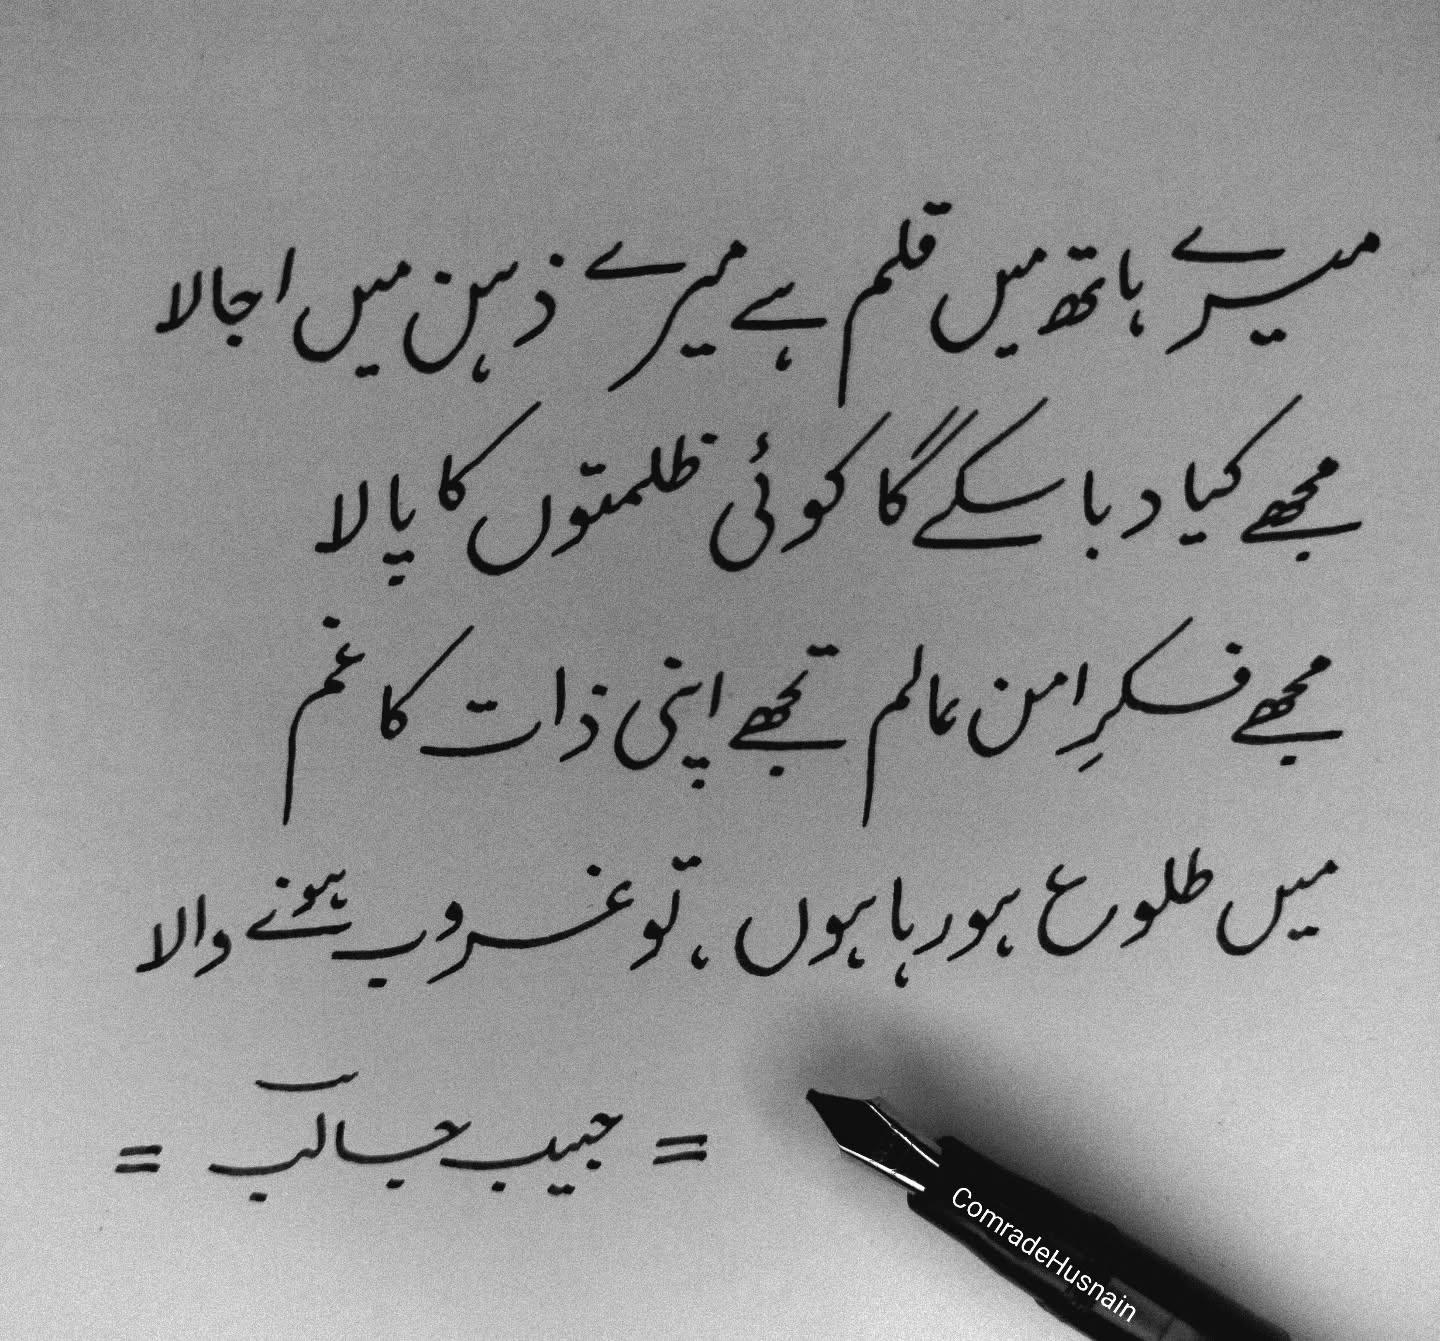 میرے ہاتھ میں قلم ہے میرے ذہن میں اجالا
مجھے کیا دبا سکے گا کوئی ظلمتوں کا پالا
مجھے فکرِ امن عالم تجھے اپنی ذات کا غم
میں طلوع ہو رہا ہوں، تو غروب ہونے والا
= حبیب جالب =
ComradeHusnain